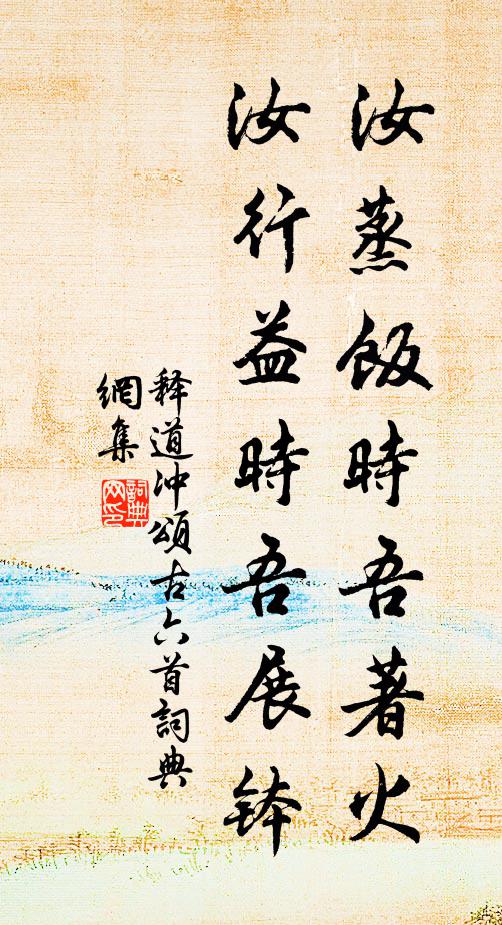 汝蒸飯時吾著火
汝行益時吾展鉢
釋道沖頌古六首詞典
網集
詞典
网印